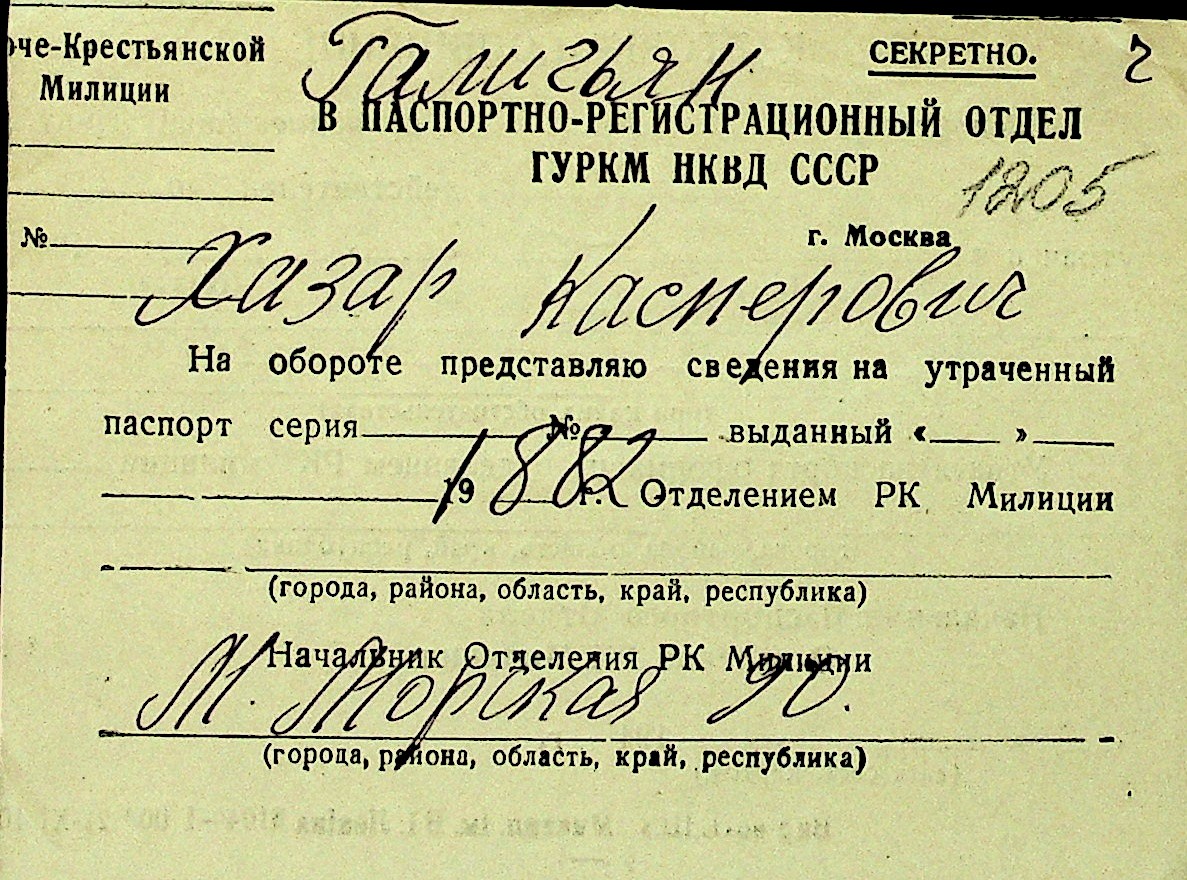 оче-Крестьянской
Милиции
Галигьян
СЕКРЕТНО.
2
В ПАСПОРТНО-РЕГИСТРАЦИОННЫЙ ОТДЕЛ
ГУРКМ НКВД СССР
1205
№
г. Москва
Хазар Касперович
На обороте представляю сведения на утраченный
паспорт серия № выданный « »
19 г. Отделением РК Милиции
1882
(города, района, область, край, республика)
Начальник Отделения РК Милиции
М. Морская 90.
(города, района, область, край, республика)